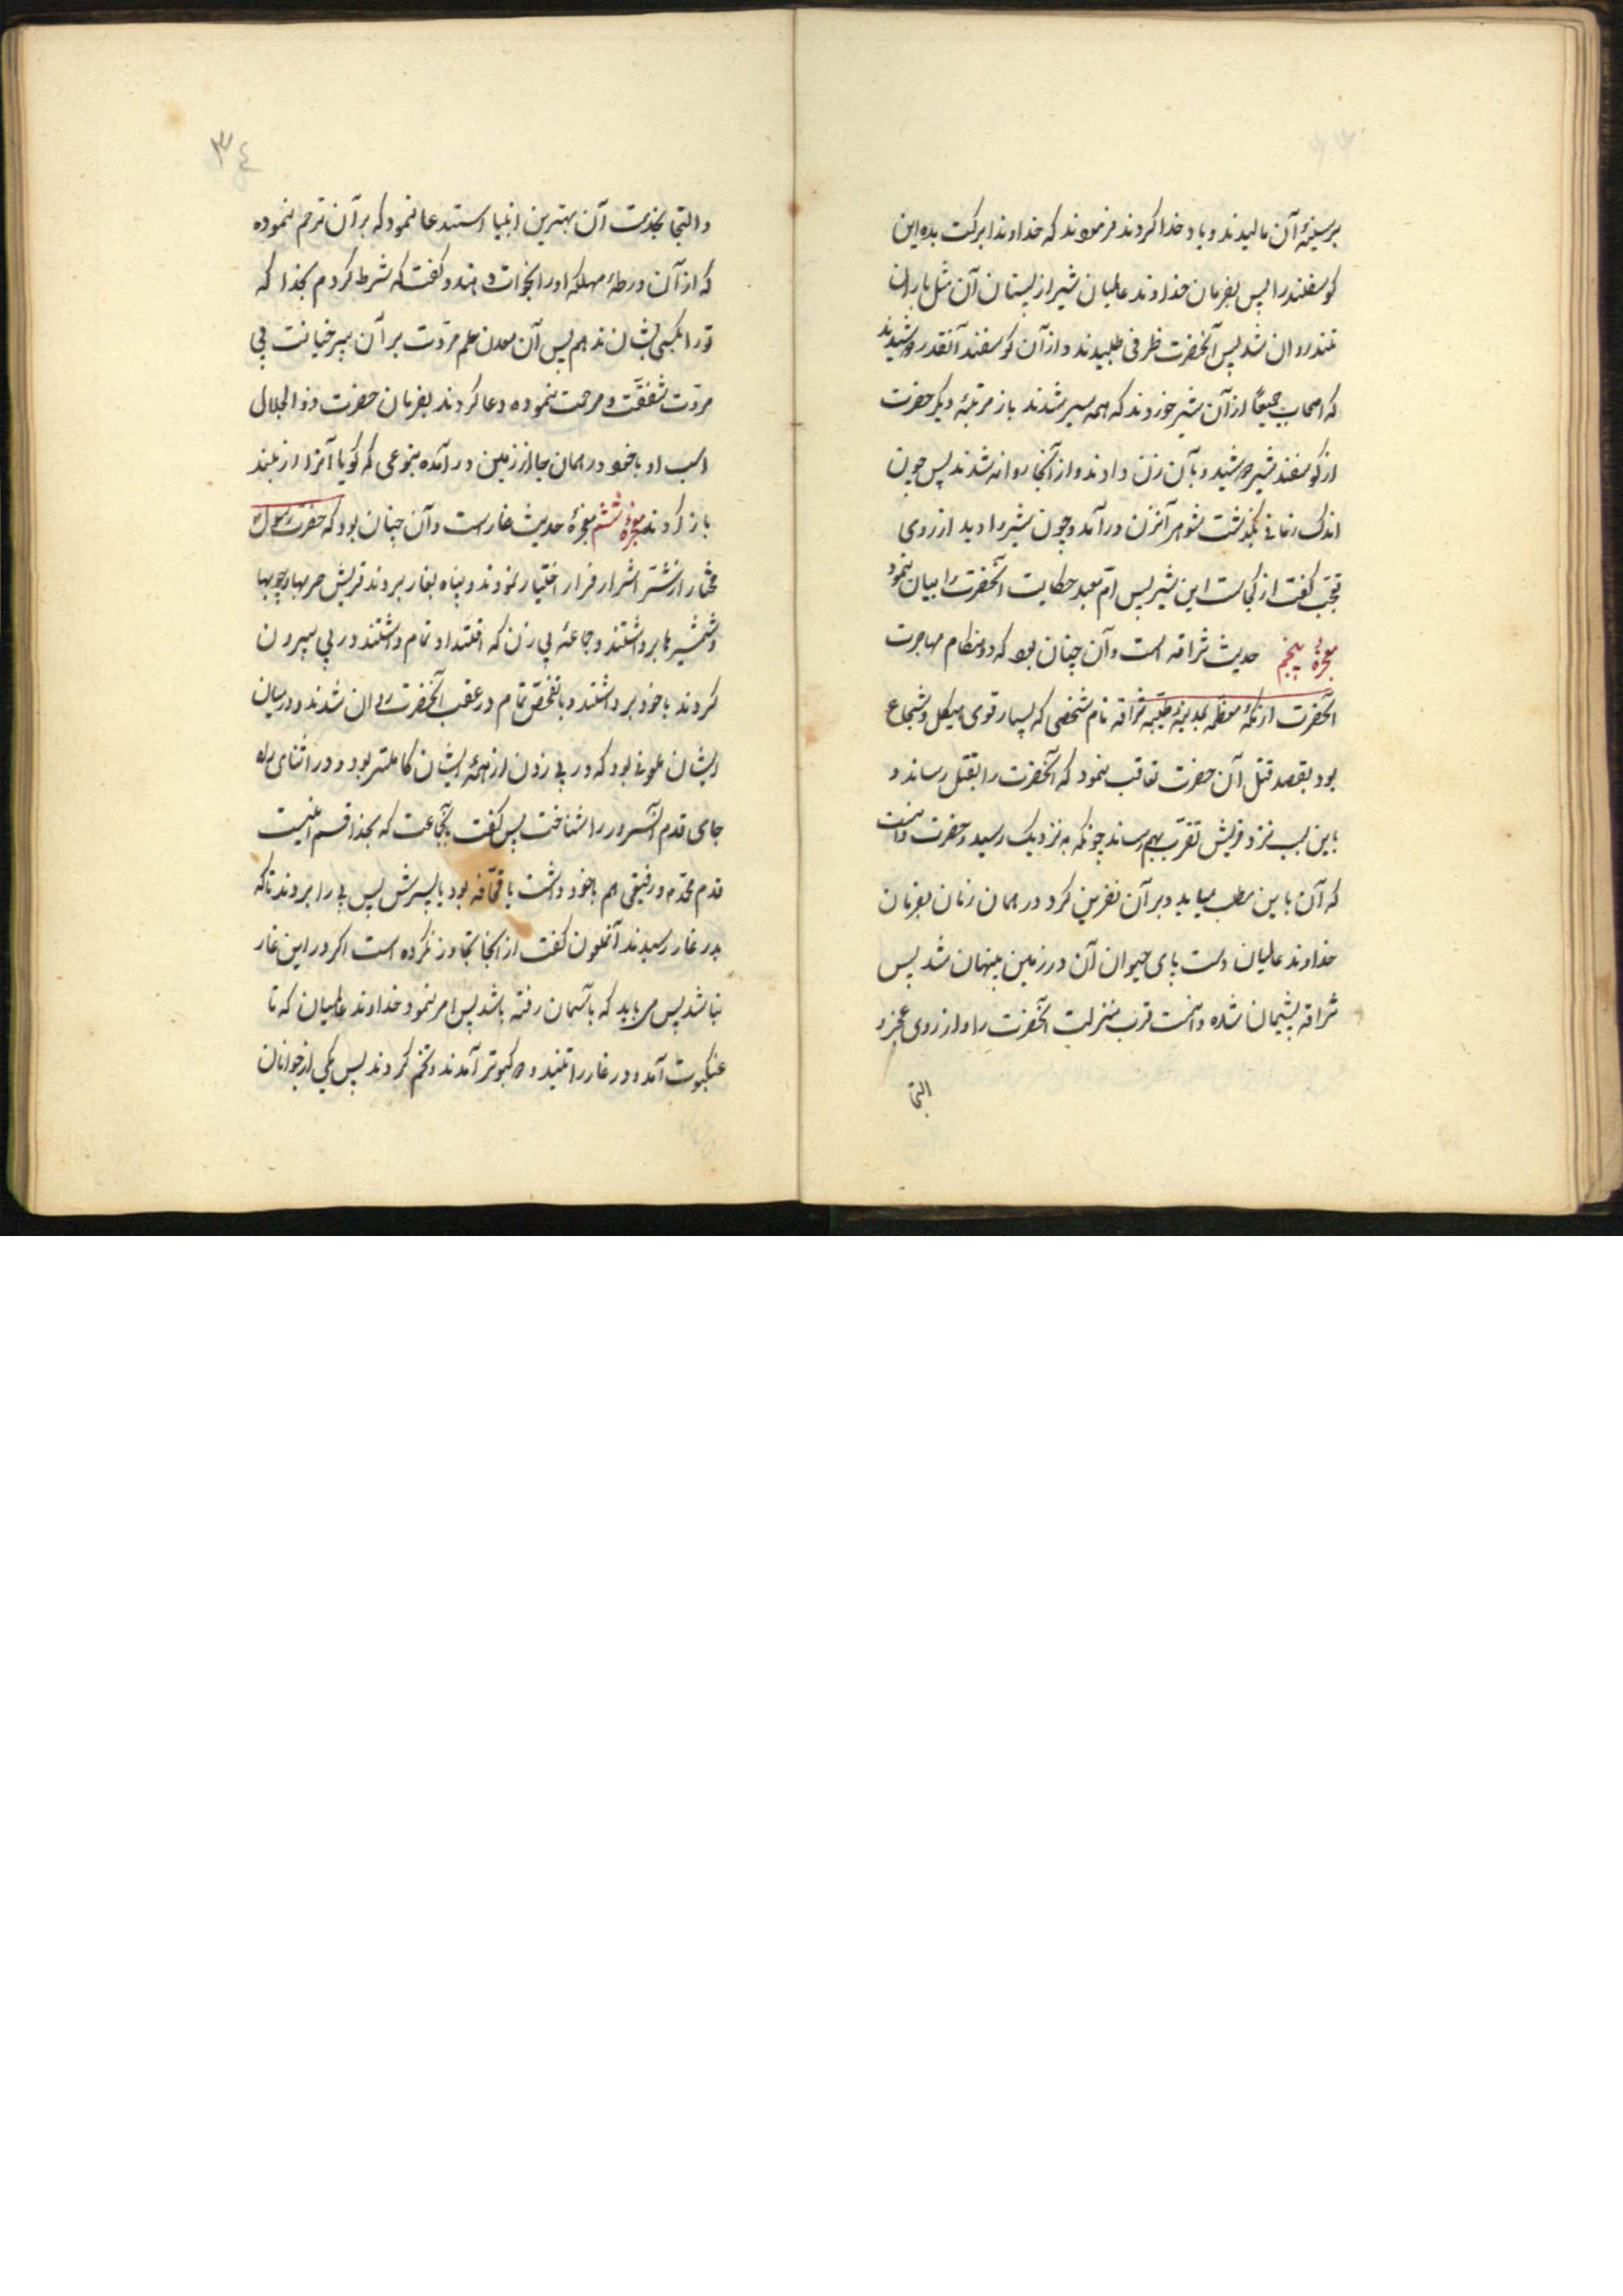 بر سینهٔ آن مالیدند و یاد خدا کردند فرمودند که خداوندا برکت بده این
کوسفند را پس بفرمان خداوند عالمیان شیر از پستان آن مثل باران
تند روان شد پس آنحضرت ظرفی طلبیدند و از آن کوسفند آنقدر دوشیدند
که اصحاب جمیعًا از آن شیر خوردند که همه سیر شدند باز مرتبهٔ دیکر حضرت
از کوسفند شیر دوشید و بآن زن دادند و از آنجا روانه شدند پس چون
اندک زمانی بگذشت شوهر آنزن درآمد و چون شیر را دید از روی
تعجّب کفت از کجاست این شیر پس امّ معبد حکایت آنحضرت را بیان نمود
معجزهٔ پنجم حدیث ثراقه است و آن چنان بود که در هنکام مهاجرت
آنحضرت از مکّهٔ معظّمه بمدینهٔ طیّبه ثراقه نام شخصی که بسیار قوی هیکل و شجاع
بود بقصد قتل آن حضرت تعاقب نمود که آنحضرت را بقتل رساند و
باین سبب نزد قریش تقرّب بهم رساند چونکه به نزدیک رسید و حضرت دانست
که آن باین مطلب میاید و بر آن نفرین کرد در همان زمان بفرمان
خداوند عالمیان دست پای حیوان آن در زمین پنهان شد پس
ثراقه پشیمان شده دانست قرب منزلت آنحضرت را و از روی عجز و
التجا
٣٤
و التجا بخدمت آن بهترین انبیا استدعا نمود که بر آن ترحم نموده
که از آن ورطهٔ مهلکه او را نجات دهند و کفت که شرط کردم بخدا که
تو را بکسی نشان ندهم پس آن معدن علم مروّت بر آن پیر خیانت بی
مروّت شفقّت و مرحمت نموده دعا کردند بفرمان حضرت ذوالجلال
اسب او با خود در همان جا از زمین درآمده بنوعی که کویا آنرا از بند
باز کردند معجزهٔ ششم معجزهٔ حدیث غار است و آن چنان بود که حضرت رسول
مختار از شّر اشرار فرار اختیار نمودند و پناه بغار بردند قریش حربها و چوبها
و شمشیرها برداشتند و جماعهٔ پی زن که اقتدار تمام داشتند در پی بیرون
کردند با خود برداشتند و با تفحّص تمام در عقب آنحضرت روان شدند و در میان
ایشان ملعونی بود که در پی زدن از همهٔ ایشان کاملتر بود و در اثنای راه
جای قدم آنسرور را شناخت پس کفت بآنجماعت که بخدا قسم اینست
قدم محمّد و رفیقی هم با خود داشت یا قحّافه بود یا پسرش پس پی را بردند تا که
بدر غار رسیدند آنملعون کفت از اینجا تجاوز نکرده است اکر در این غار
نباشد پس می باید که بآسمان رفته باشد پس امر نمود خداوند عالمیان که تا
عنکبوت آمد و در غار را تنید و دو کبوتر آمدند و تخم کردند پس یکی از جوانان